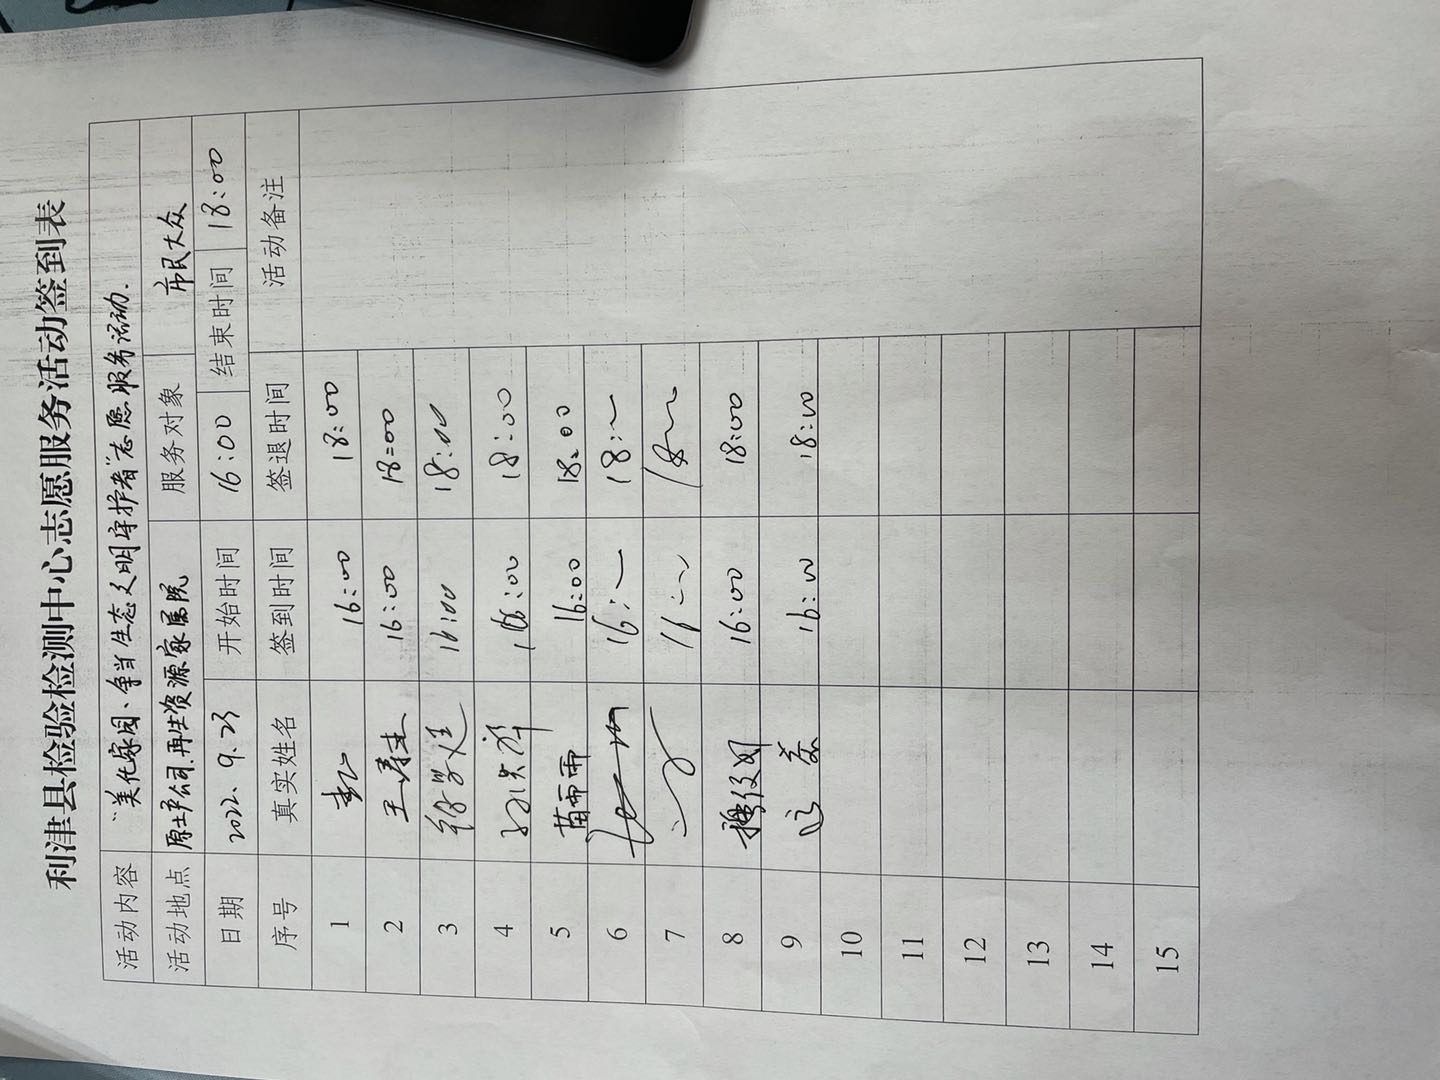 利津县检验检测中心志愿服务活动签到表
活动内容 “美化家园、争当生态文明守护者”志愿服务活动.
活动地点 原土产公司.再生资源家属院 服务对象 市民大众
日期 2022.9.23 开始时间 16:00 结束时间 18:00
序号 真实姓名 签到时间 签退时间 活动备注
1 16:00 18:00
2 王寿杰 16:00 18:00
3 16:00 18:00
4 16:00 18:00
5 苗雨雨 16:00 18:00
6 16: 18:
7
8 16:00 18:00
9 16:00 18:00
10
11
12
13
14
15